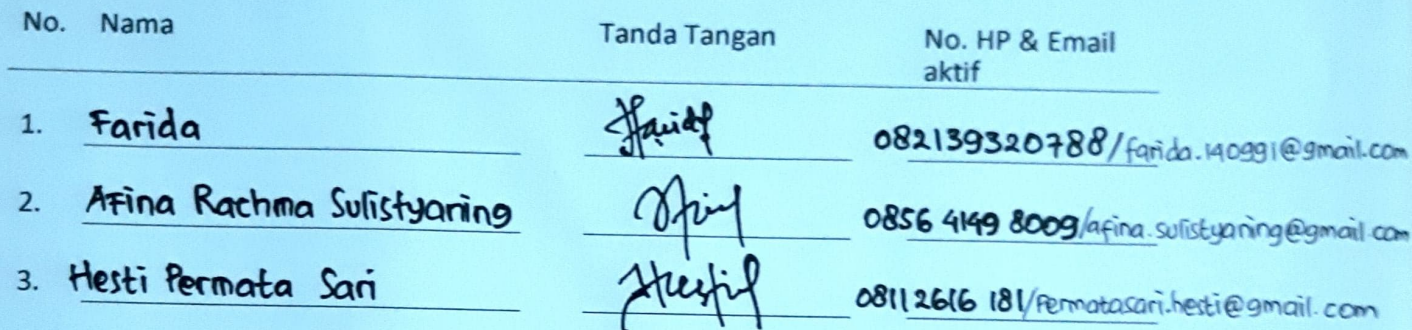 No. Nama Tanda Tangan No. HP & Email
aktif
1. Farida 082139320788/farida.140991@gmail.com
2. Afina Rachma Sulistyaning 0856 4149 8009/afina.sulistyaning@gmail.com
3. Hesti Permata Sari 08112616 181/permatasari.hesti@gmail.com